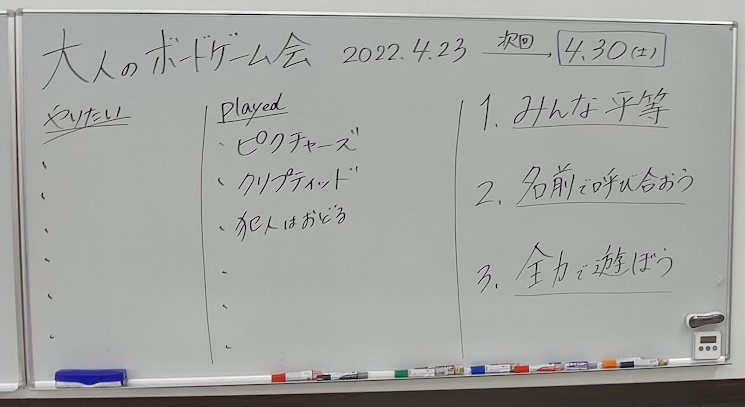 大人のボードゲーム会 2022.4.23 次回→ 4.30(土)
やりたい
played
・ピクチャーズ
・クリプティッド
・犯人はおどる
1. みんな平等
2. 名前で呼び合おう
3. 全力で遊ぼう